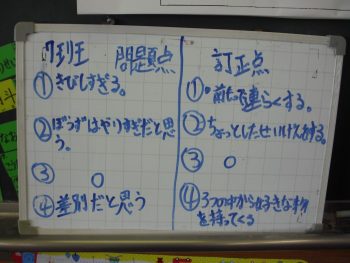 7班 問題点
①きびしすぎる。
②ぼうずはやりすぎだと思
う。
③ ○
④差別だと思う
訂正点
①・前もって連らくする。
②ちょっとしたせいげんをする。
③ ○
④3つの中から好きな物
を持ってくる